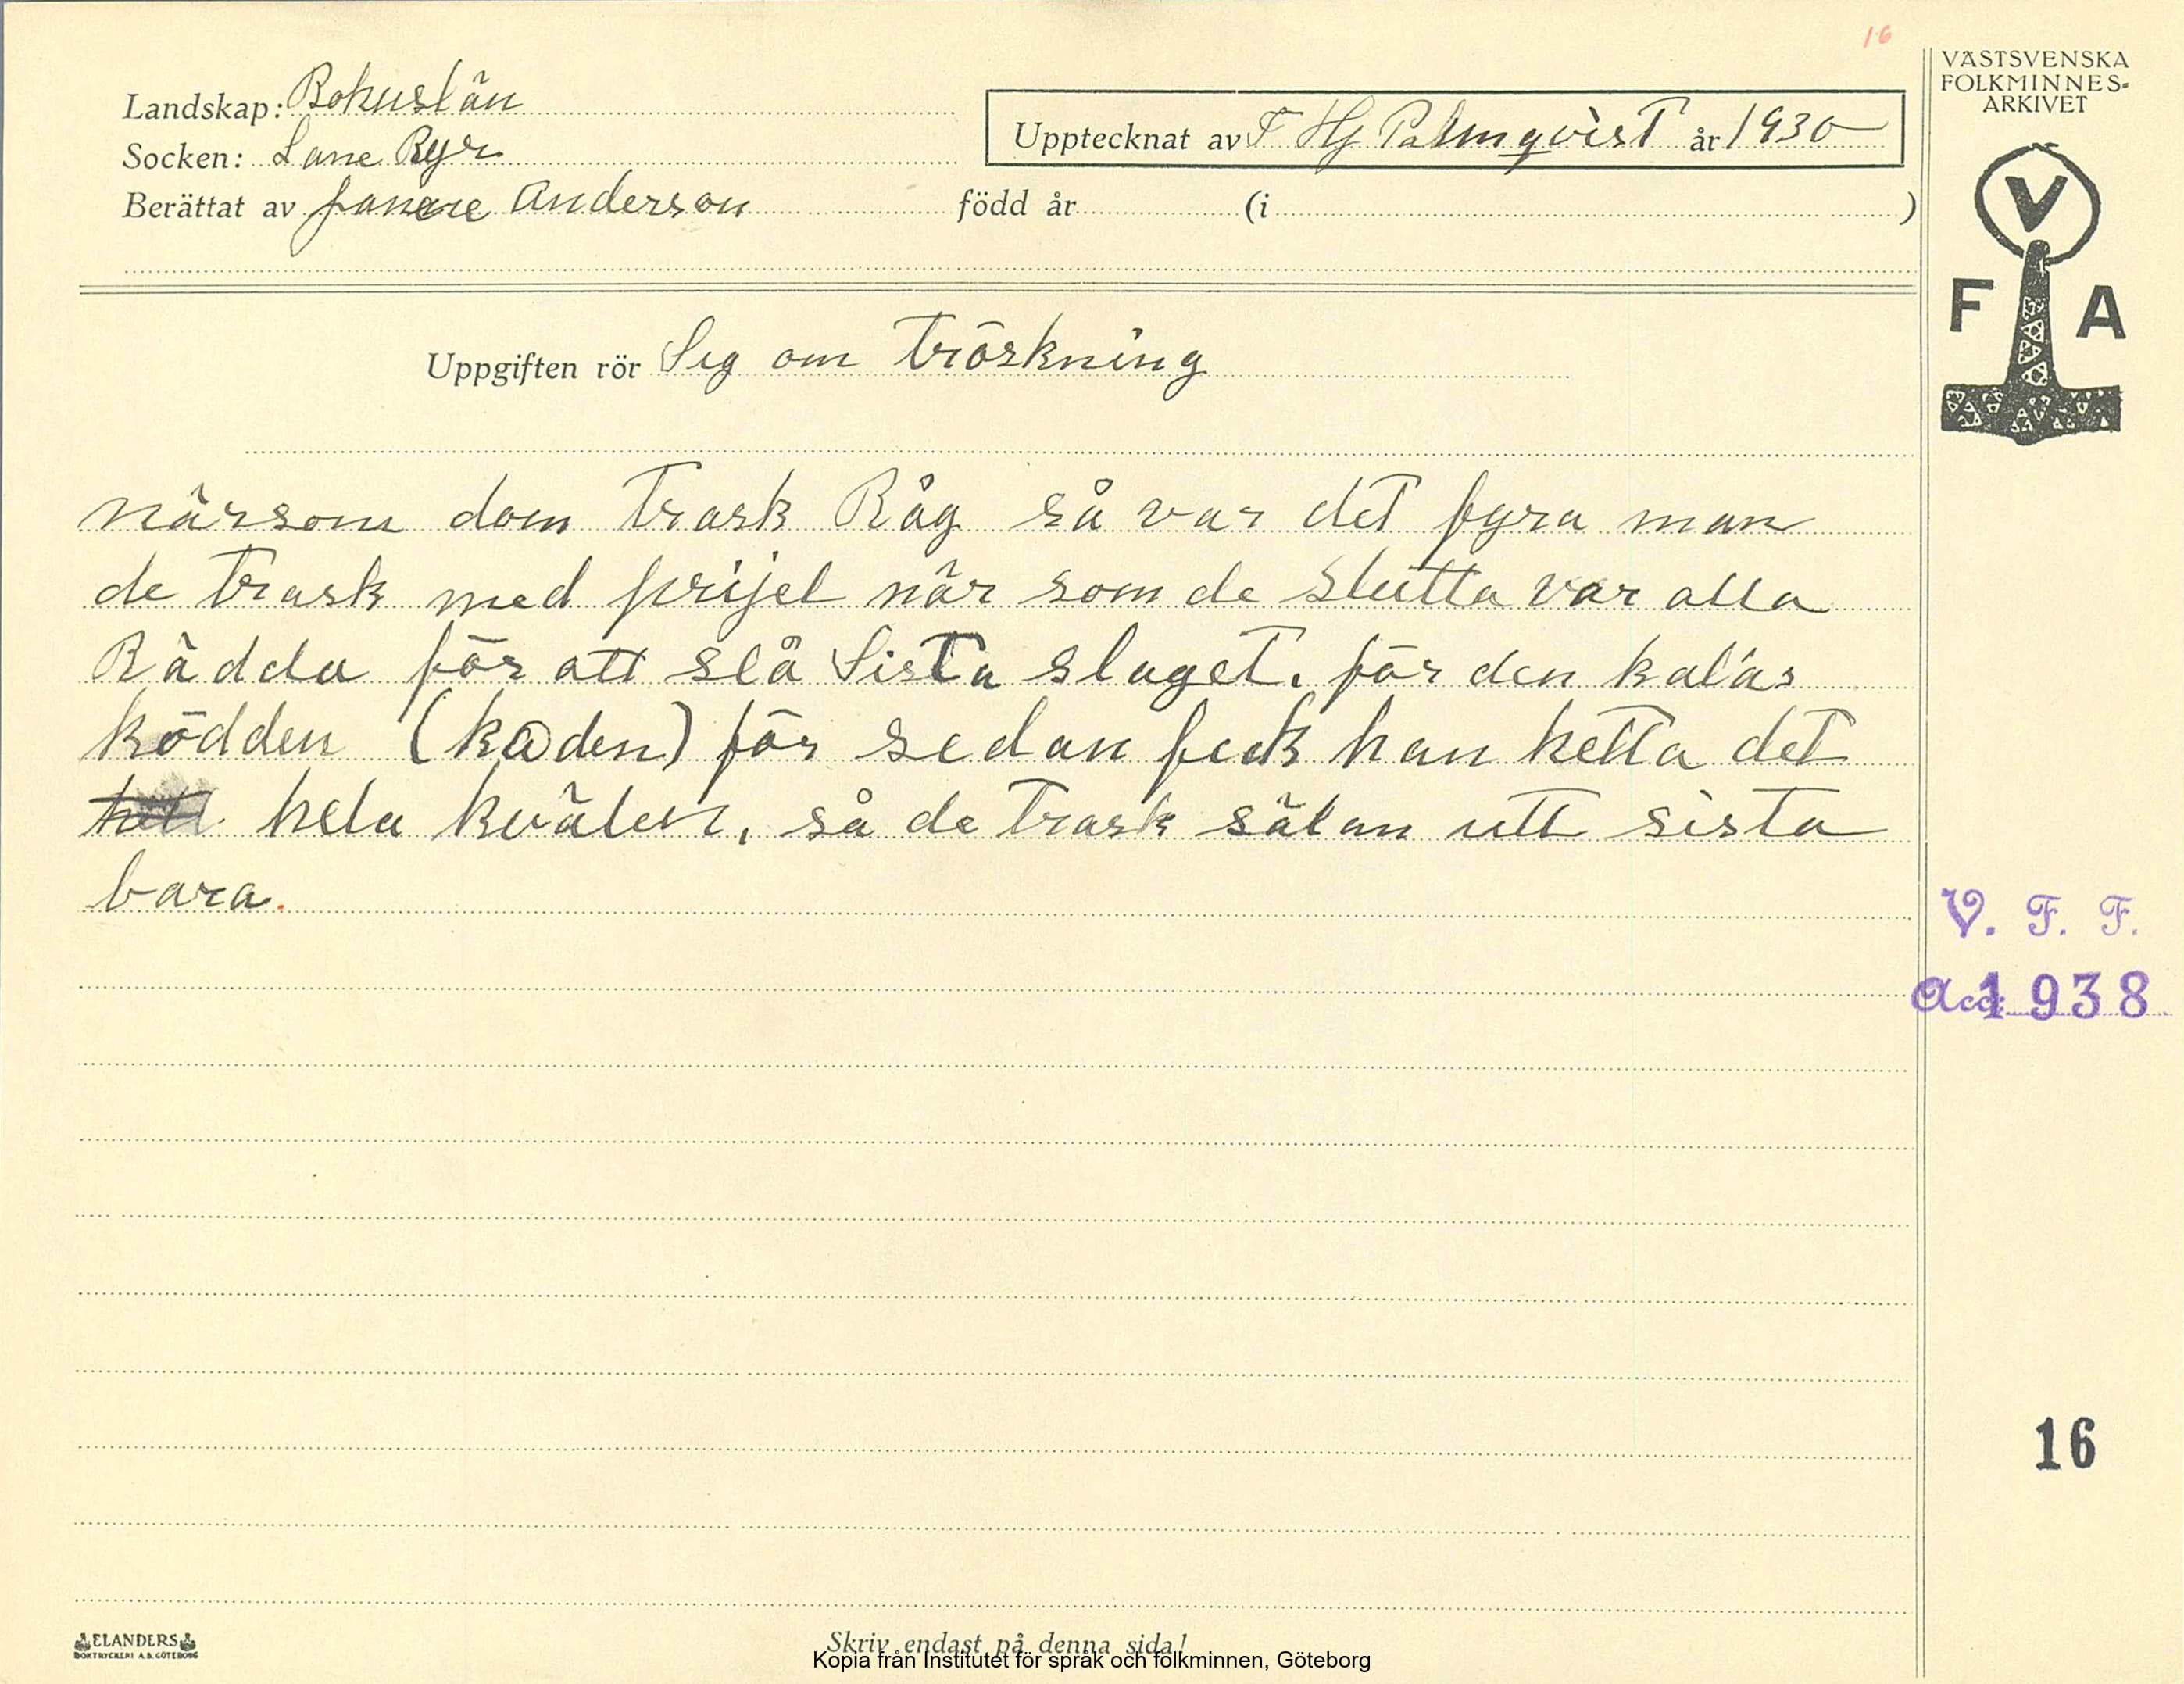 16
VÄSTSVENSKA
FOLKMINNES-
ARKIVET
Landskap: Bohuslän
Socken: Lane Ryr
Upptecknat av F Hj Palmqvist år 1930
Berättat av Anderson född år (i )
V
F A
Uppgiften rör Seg om Tröskning
närsom dom Trask Råg så var det fyra man
de Trask med prijel när som de Slutta var alla
Rädda för att slå Sista slaget. för den kalas
ködden (kødden) för sedan feck han hetta det
hela kvälen, så de Trask sälan utt sista
bara.
V. F. F.
Acc. 1938
16
ELANDERS
BOKTRYCKERI A.B. GÖTEBORG
Skriv endast på denna sida!
Kopia från Institutet för språk och folkminnen, Göteborg